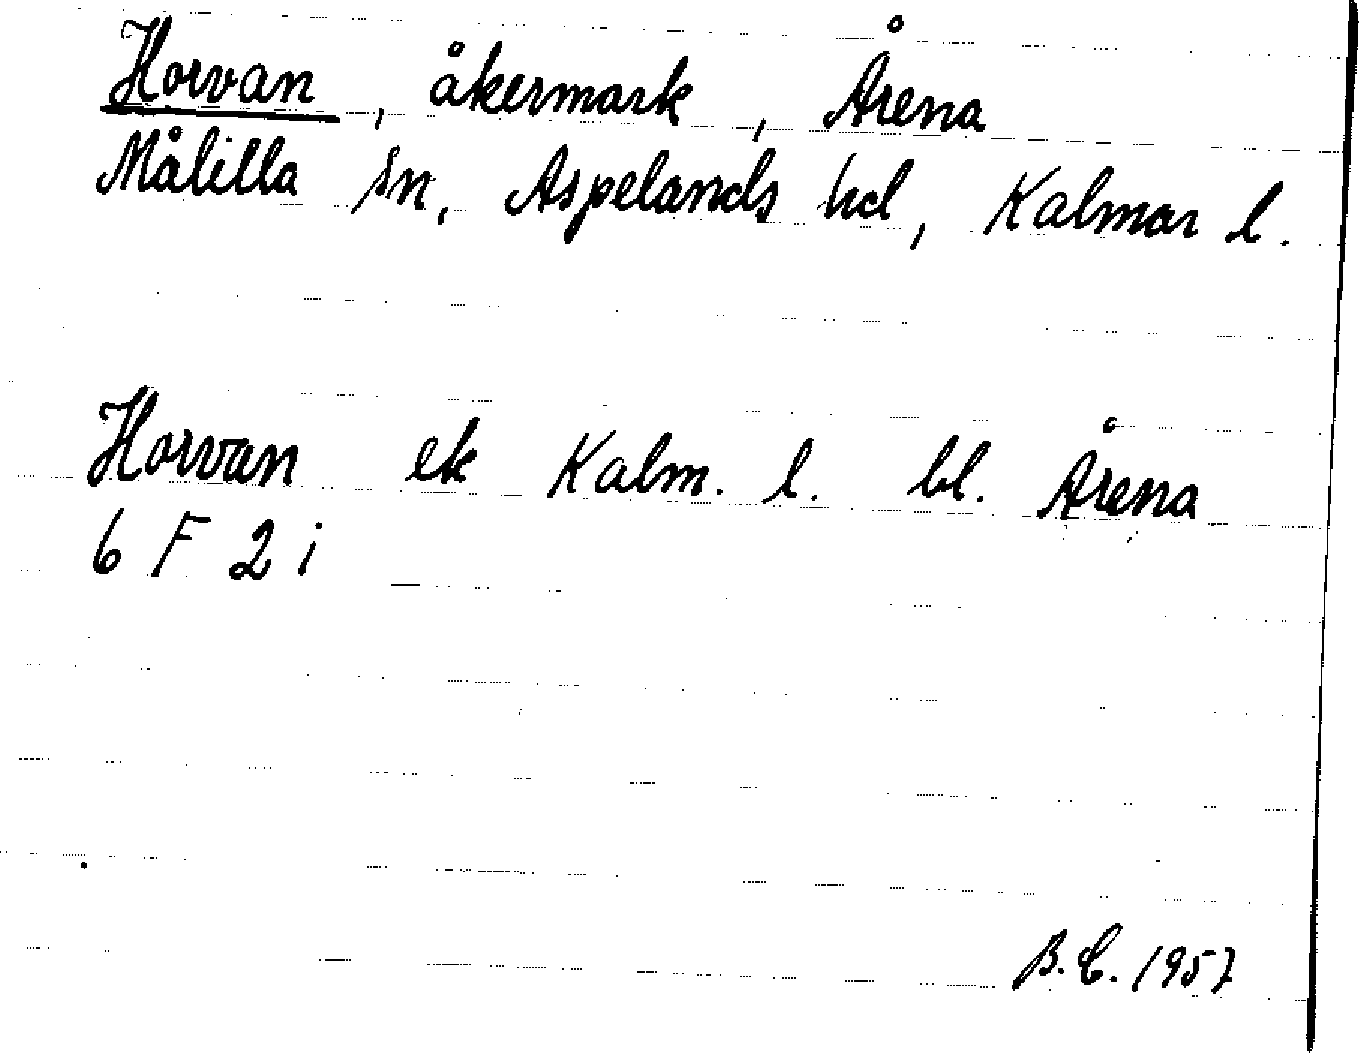 Horvan, åkermark, Årena
Målilla sn, Aspelands hd, Kalmar l.
Horvan ek Kalm. l. bl. Årena
6 F 2 i
B.C. 1957